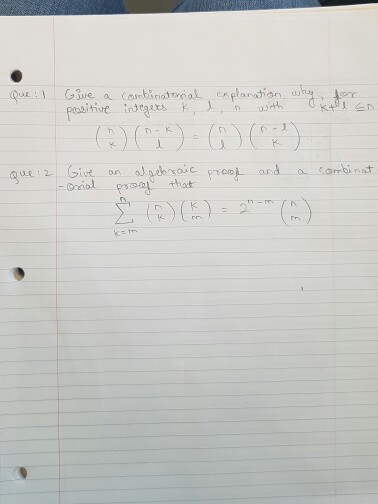 Que:1 Give a combinatorial explanation why, for
positive integers k, l, n with k+l ≤ n
(n k)(n-k l) = (n l)(n-l k)
Que:2 Give an algebraic proof and a combinat
-orial proof that
∑_{k=m}^{n} (n k)(k m) = 2^{n-m} (n m)